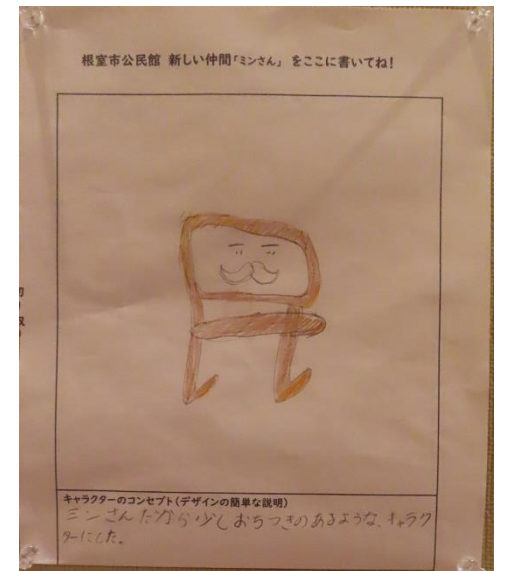 根室市公民館 新しい仲間「ミンさん」 をここに書いてね!
キャラクターのコンセプト(デザインの簡単な説明)
ミンさんだから少しおちつきのあるような、キャラク
ターにした。